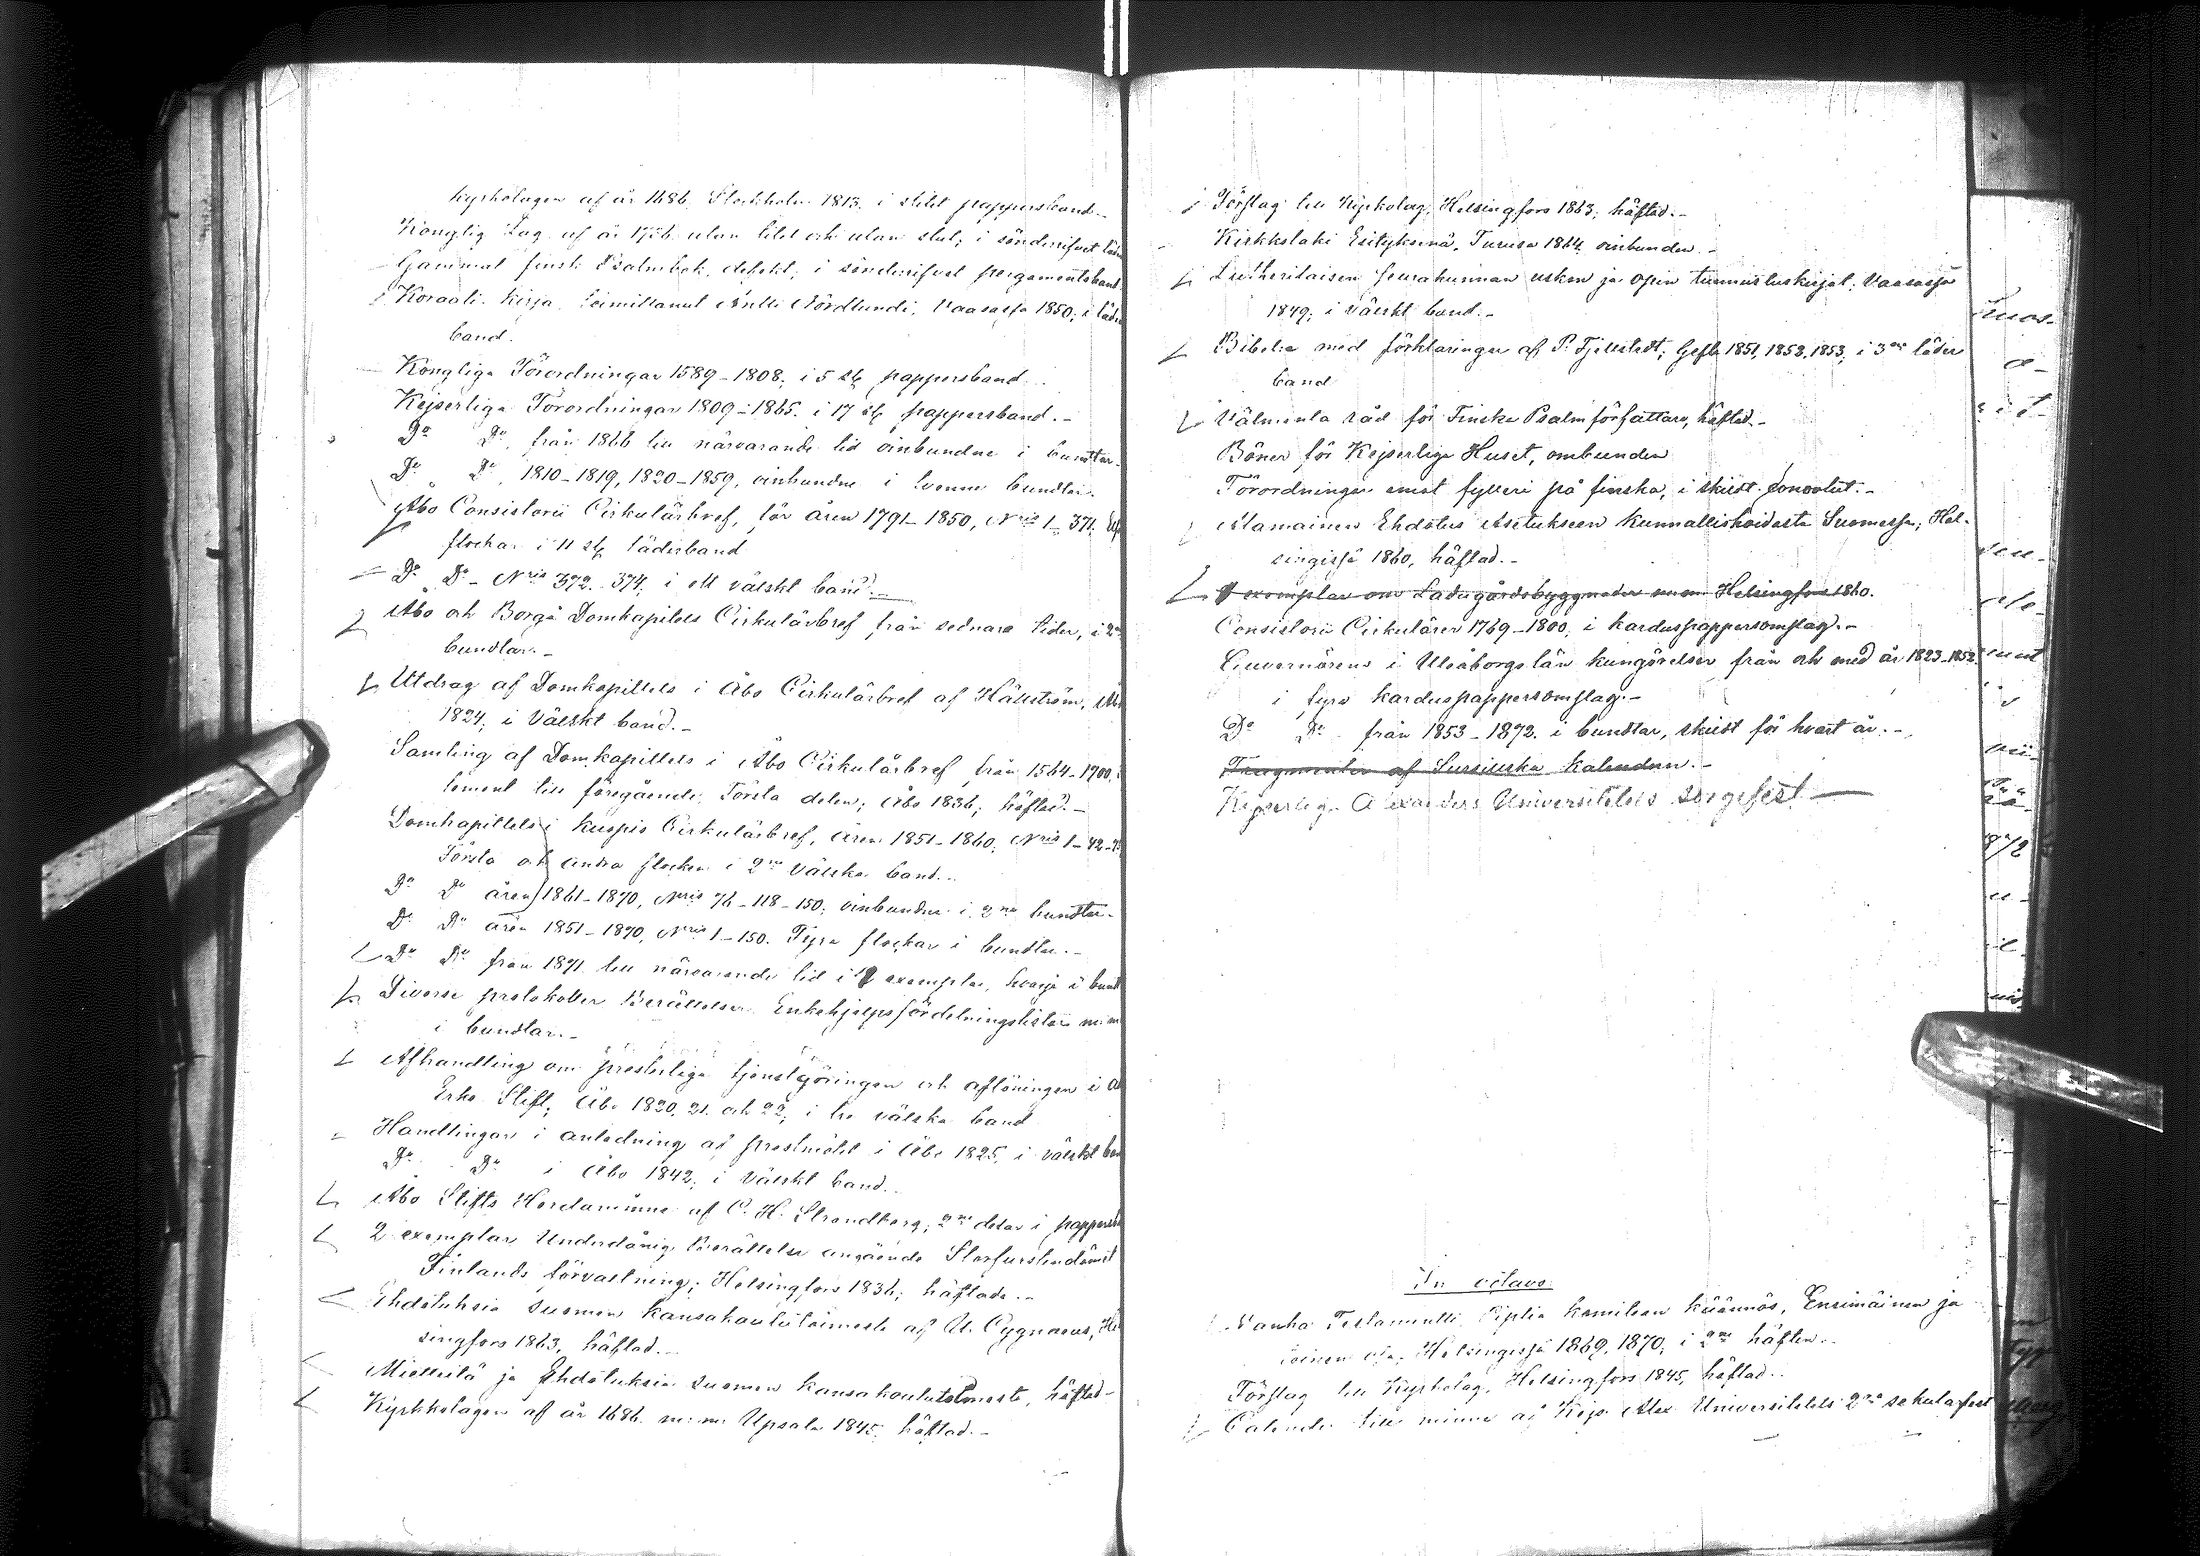 Kyrkolagen af år 1686. Stockholm 1813. i slitet pappersband.-
Konglig Lag af år 1736. utan titel och utan slut; i sönderrifvet läder
Gammal finsk Psalmbok, defekt; i sönderrifvet pergamentsband
Koraali-kirja toimittanut Antti Nordlundi; Vaasassa 1850; i läder
band.
Kongliga Förordningar 1589-1808; i 5 st. pappersband.
Kejserliga Förordningar 1809-1865. i 17 st. pappersband.-
Do Do från 1866 till närvarande tid oinbundne i bundtar.-
Do Do 1810-1819, 1820-1859, oinbundne i tvenne bundtar.
Åbo Consistorii Cirkulärbref, för åren 1791-1850, Nris 1-371;
flockar i 11 st. läderband
Do Do- Nris 372-374; i ett välskt band.-
Åbo och Borgå Domkapitels Cirkulärbref från sednare tider, i 2
bundtar.-
Utdrag af Domkapitlets i Åbo Cirkulärbref af Hällström, Åbo
1824; i välskt band.-
Samling af Domkapitlets i Åbo Cirkulärbref från 1564-1700,
lement till föregående, Första delen; Åbo 1836; häftad.-
Domkapitlets i Kuopio Cirkulärbref, åren 1851-1860, Nris 1-42-75
Första och andra flocken i 2ne välska band.-
Do Do åren 1861-1870, Nris 76-118-150; oinbundna i 2ne bundtar.-
Do Do åren 1851-1870, Nris 1-150. Fyra flockar i bundtar.-
Do Do från 1871 till närvarande tid i exemplar, hvarje i bundt
Diverse protokoller Berättelser Enkehjelpsfördelningslistor m:m
i bundtar.-
Afhandling om presterliga tjenstgöringen och aflöningen i Åbo
Erke Stift; Åbo 1820, 21. och 22; i tre välska band
Handlingar i anledning af prestmötet i Åbo 1825, i välskt band
Do Do i Åbo 1842; i välskt band.
Åbo Stifts Herdaminne af C. H. Strandberg; 2ne delar i pappersb
2 exemplar Underdånig berättelse angående Storfurstendömet
Finlands förvaltning; Helsingfors 1836; häftade.-
Ehdotuksia Suomen kansakoulutoimesta af U. Cygnaeus, Hel
singfors 1863, häftad.-
Mietteitä ja Ehdotuksia Suomen kansakoulutoimesta, häftad.-
Kyrkkolagen af år 1686. m:m: Upsala 1845; häftad.-
Förslag till Kyrkolag, Helsingfors 1863; häftad.-
Kirkkolaki Esityksenä, Turussa 1864. oinbunden.-
Lutherilaisen Seurakunnan uskon ja opin tunnustuskirjat; Vaasassa
1849; i välskt band.-
Bibelin med förklaringar af P. Fjellstedt; Gefle 1851, 1852, 1853; i 3ne läder
band
Välmenta råd för Finska Psalmförfattare, häftad.-
Böner för Kejserliga Huset, ombunden
Förordningar emot fylleri på finska, i skildt convolut.-
Alamainen Ehdotus Asetukseen kunnallishoidosta Suomessa; Hel-
singissä 1860, häftad.-
exemplar om Ladugårdsbyggnader Helsingfors 1860.
Consistorii Cirkulärer 1769-1800, i karduspappersomslag.-
Guvernörens i Uleåborgs län kungörelser från och med år 1823-1852
i fyra karduspappersomslag.-
Do Do från 1853-1872. i bundtar, skildt för hvart år.-
Fragmenter af Sursillska kalendern.-
Kejserliga Alexanders Universitetets Sorgefest
In octavo.
Vanha Testamentti, Piplia komitean käännös, Ensimäinen ja
toinen osa, Helsingissä 1869, 1870; i 2ne häften.-
Förslag till Kyrkolag, Helsingfors 1845, häftad.
Calender till minne af Kejs. Alex. Universitetets 2dra sekularfest